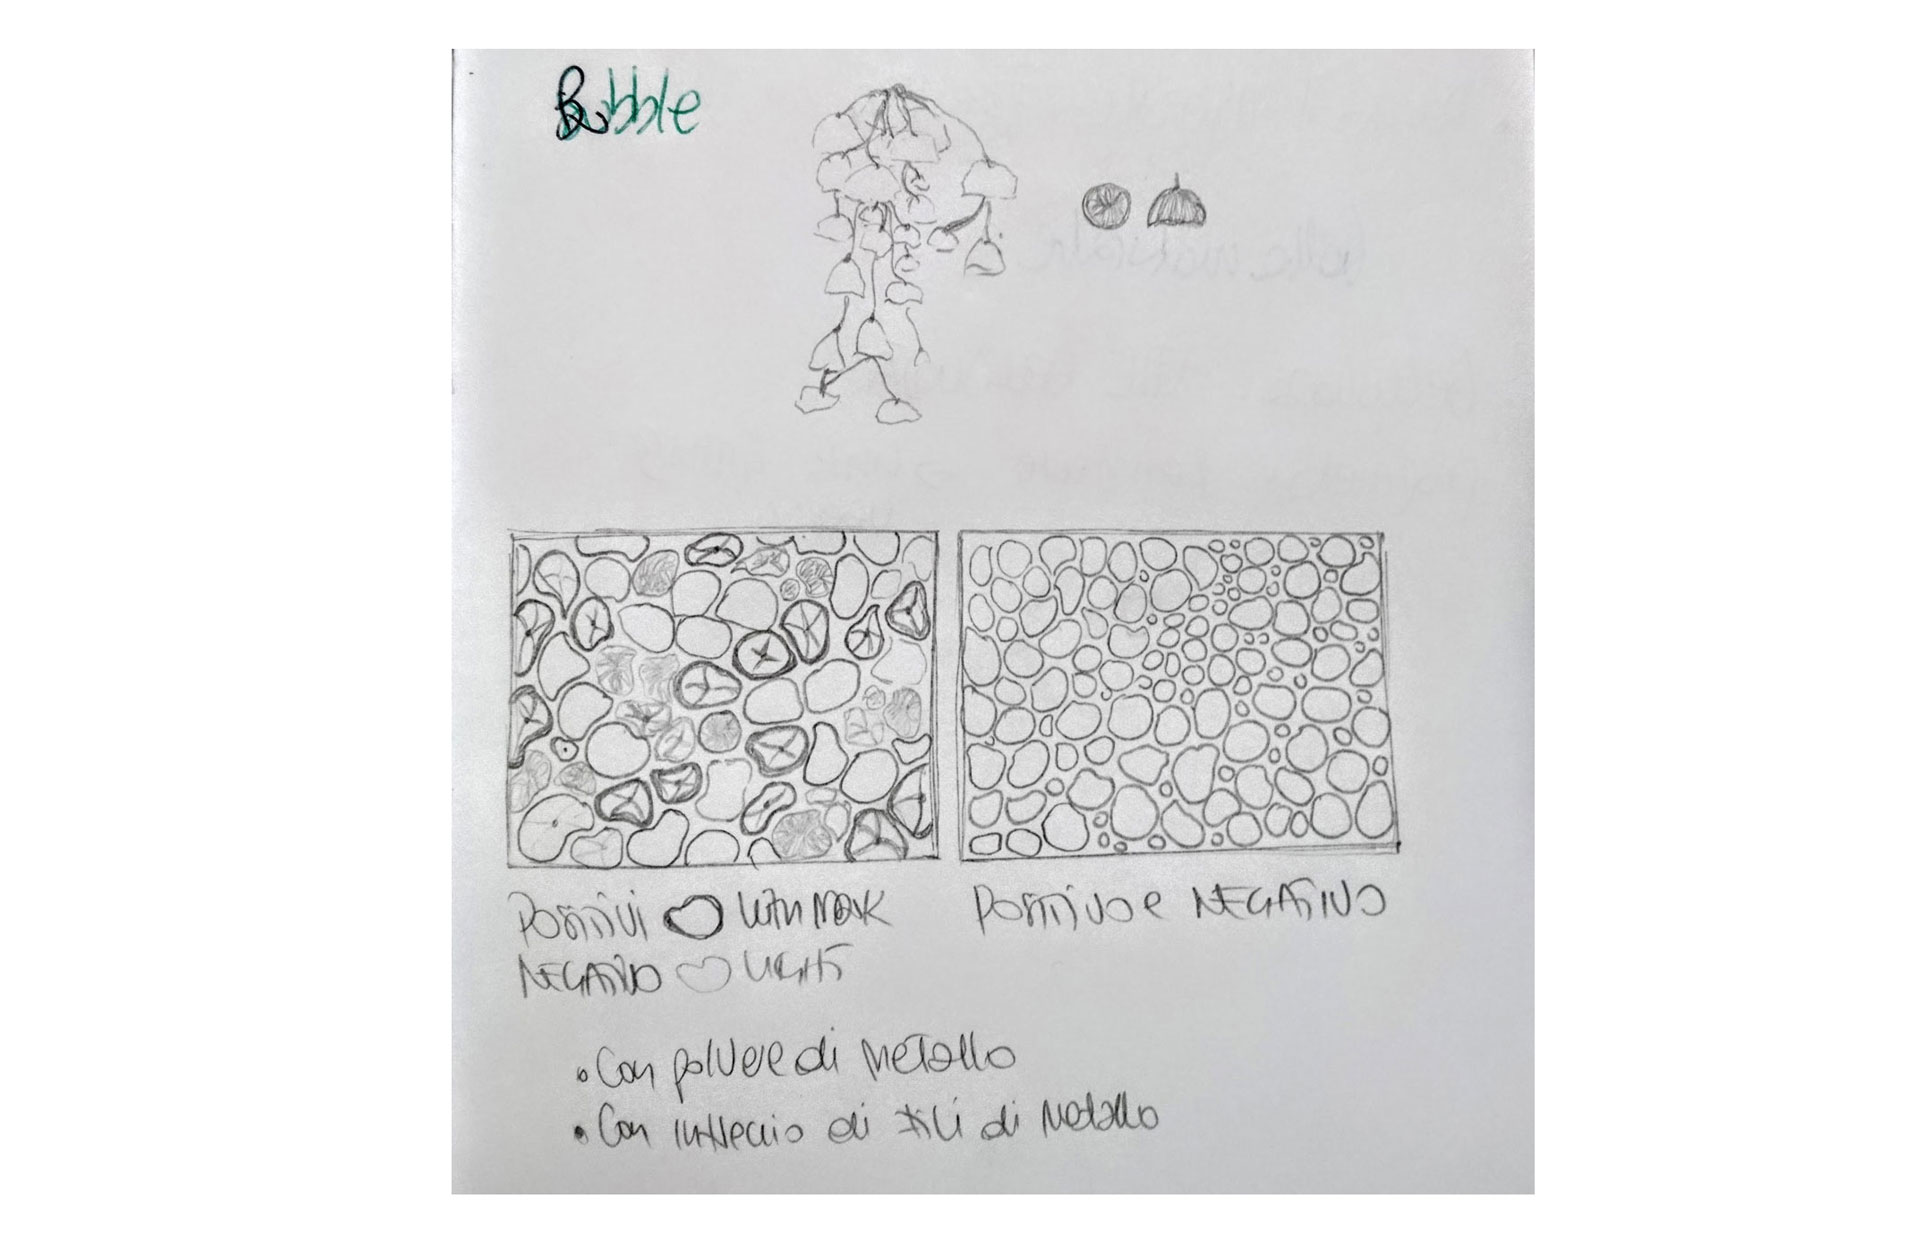 Bubble
POSITIVI WITH MARK
NEGATIVO LIGHT
POSITIVO e NEGATIVO
• Con polvere di Metallo
• Con intreccio di fili di Metallo